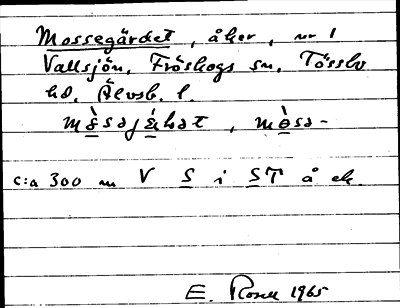 Mossegärdet, åker, nr 1
Vallsjön, Fröskogs sn, Tössbo
hd, Älvsb. l.
c:a 300 m V S i ST å ek.
E. Rosell 1965